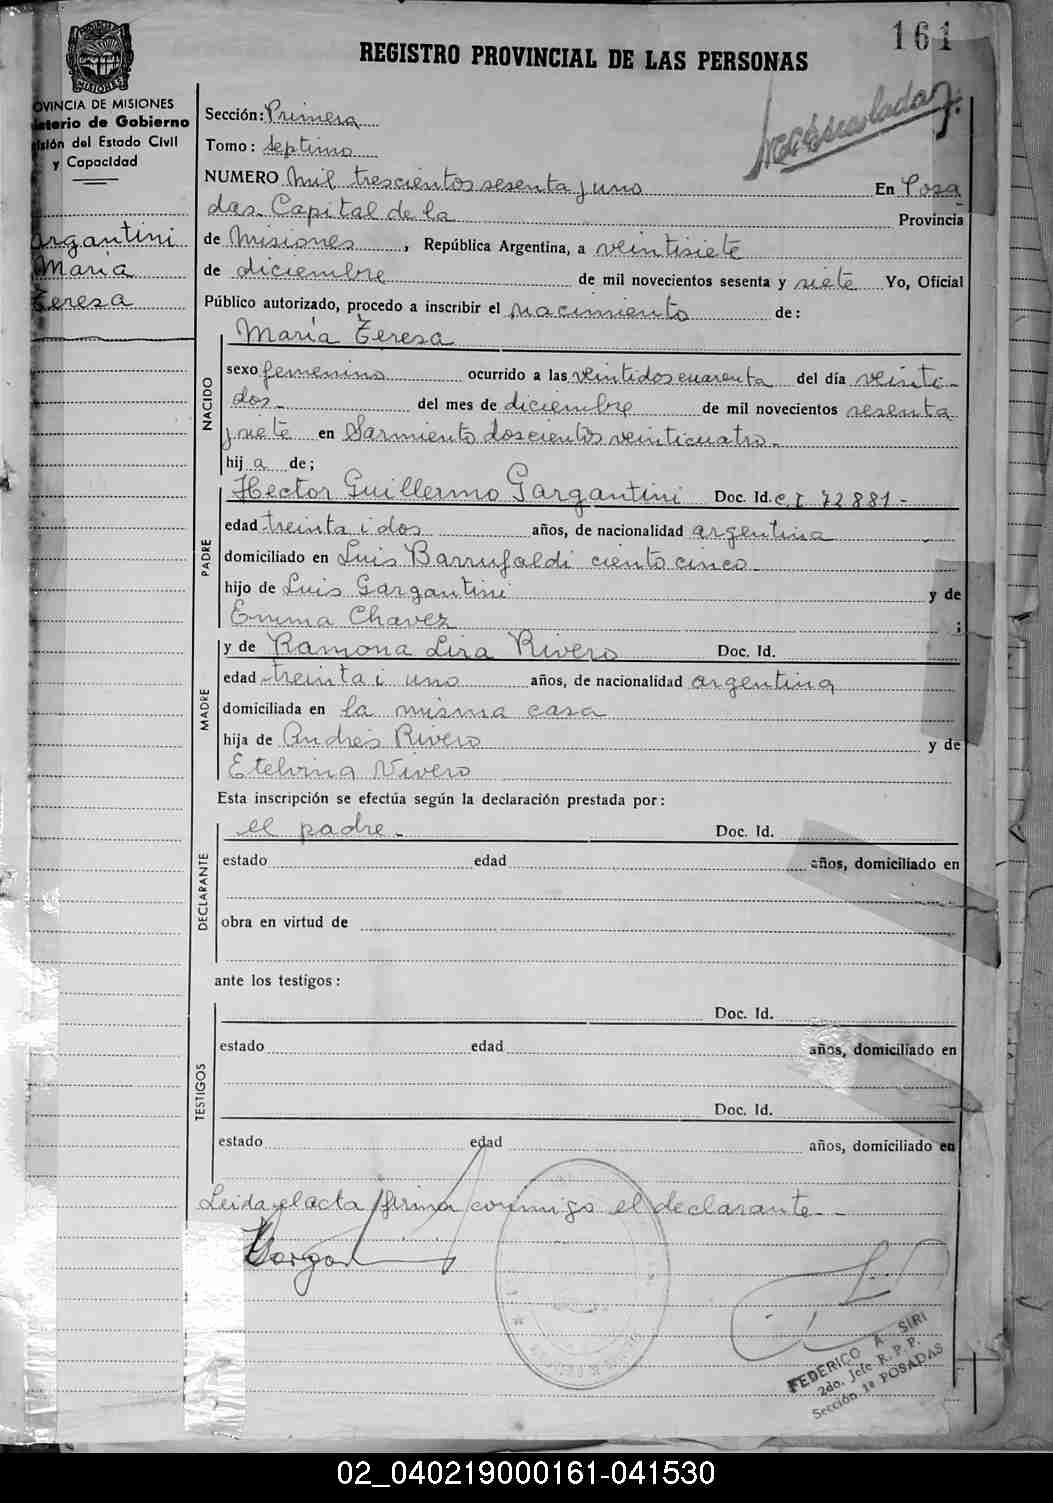 161
REGISTRO PROVINCIAL DE LAS PERSONAS
PROVINCIA
MISIONES
OVINCIA DE MISIONES
isterio de Gobierno
sión del Estado Civil
y Capacidad
argantini
María
Teresa
Sección: Primera
Tomo: septimo
NUMERO Mil trescientos sesenta y uno En Posa
das. Capital de la Provincia
de Misiones, República Argentina, a veintisiete
de diciembre de mil novecientos sesenta y siete Yo, Oficial
Público autorizado, procedo a inscribir el nacimiento de:
María Teresa
NACIDO
sexo femenino ocurrido a las veintidos cuarenta del día veinti-
dos- del mes de diciembre de mil novecientos sesenta
y siete en Sarmiento doscientos veinticuatro-
hija de;
PADRE
Hector Guillermo Gargantini Doc. Id. C.I 72881-
edad treinta i dos años, de nacionalidad argentina
domiciliado en Luis Barrufaldi ciento cinco
hijo de Luis Gargantini y de
Emma Chavez ;
MADRE
y de Ramona Lira Rivero Doc. Id.
edad treinta i uno años, de nacionalidad argentina
domiciliada en la misma casa
hija de Andrés Rivero y de
Etelvina Vivero
Esta inscripción se efectúa según la declaración prestada por:
DECLARANTE
el padre- Doc. Id.
estado edad años, domiciliado en
obra en virtud de
ante los testigos:
TESTIGOS
Doc. Id.
estado edad años, domiciliado en
Doc. Id.
estado edad años, domiciliado en
Leida el acta firma conmigo el declarante--
FEDERICO A. SIRI
2do. Jefe R. P. P.
Sección 1ª POSADAS
02_040219000161-041530